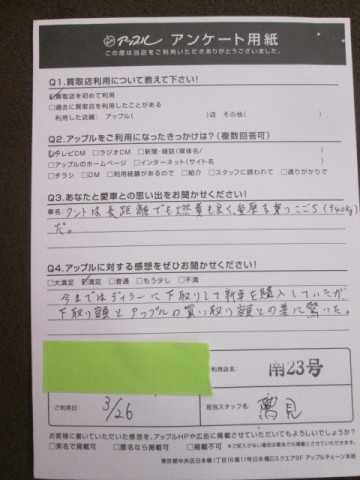 アップル アンケート用紙
この度は当店をご利用いただきありがとうございました。
Q1.買取店利用について教えて下さい!
☑買取店を初めて利用
□過去に買取店を利用したことがある
利用した店舗: アップル( )店 その他( )
Q2.アップルをご利用になったきっかけは?(複数回答可)
☑テレビCM □ラジオCM □新聞・雑誌(媒体名/ )
□アップルのホームページ □インターネット(サイト名 )
□チラシ □DM □利用経験があるので □紹介 □スタッフに誘われて □通りがかりで
Q3.あなたと愛車との思い出をお聞かせください!
車名: タントは長距離でも燃費も良く、愛着を
だ。
Q4.アップルに対する感想をぜひお聞かせください!
□大満足 ☑満足 □普通 □もう少し □不満
今まではディラーに下取りして新車を購入していたが、
下取り額とアップルの買い取り額との差に驚いた。
ご利用店名: 南23号
ご利用日: 3/26
担当スタッフ名: 鷲見
お客様に書いていただいた感想を、アップルHPや広告に掲載させていただいてもよろしいでしょうか?
□実名で掲載可 □匿名なら掲載可 □掲載不可 *ご記入がない場合は匿名での掲載とさせていただきます。
東京都中央区日本橋1丁目16番11号日本橋DスクエアSF アップルチェーン本部